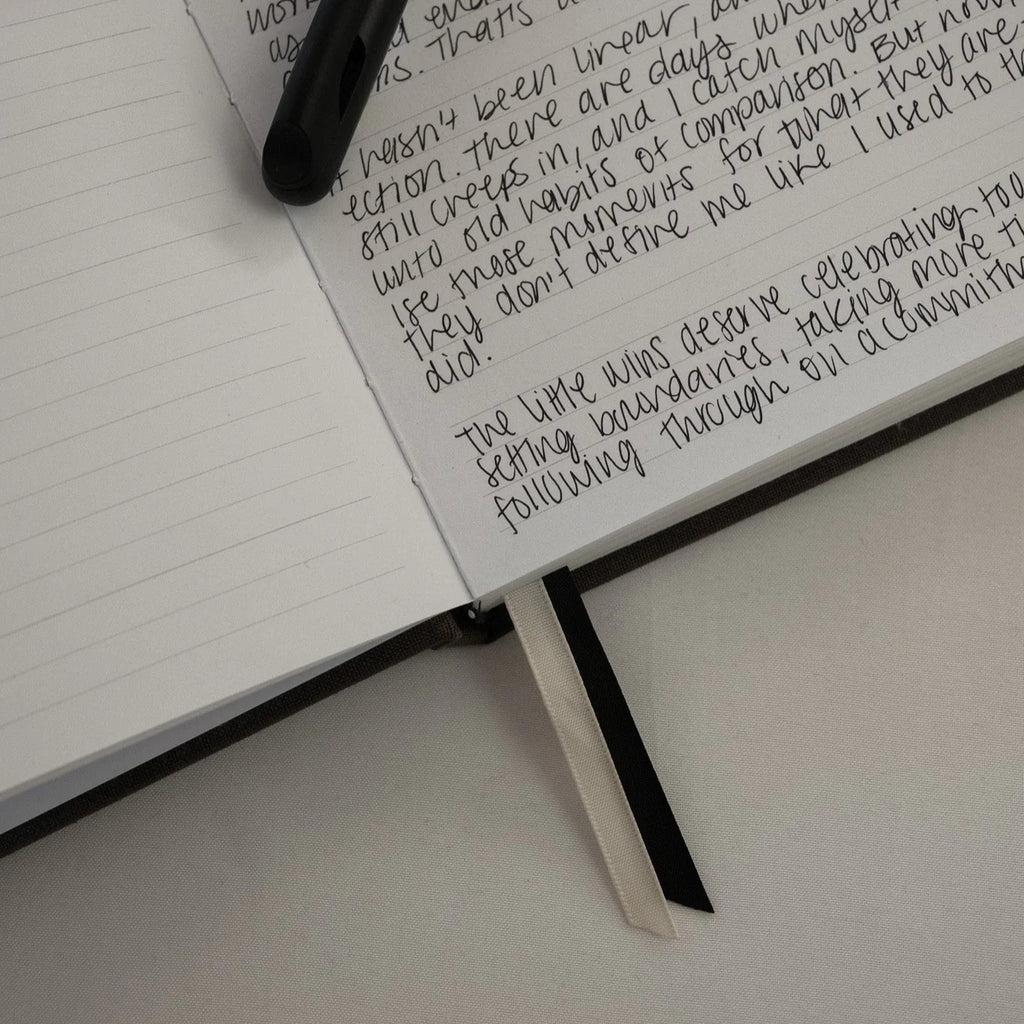 work
as end
ns. That's
it hasn't been linear, an
ection. There are days when
still creeps in, and I catch myself
unto old habits of comparison. But now
ise those moments for what they are
they don't define me like I used to th
did.
The little wins deserve celebrating too
setting boundaries, taking more ti
following through on a commitme